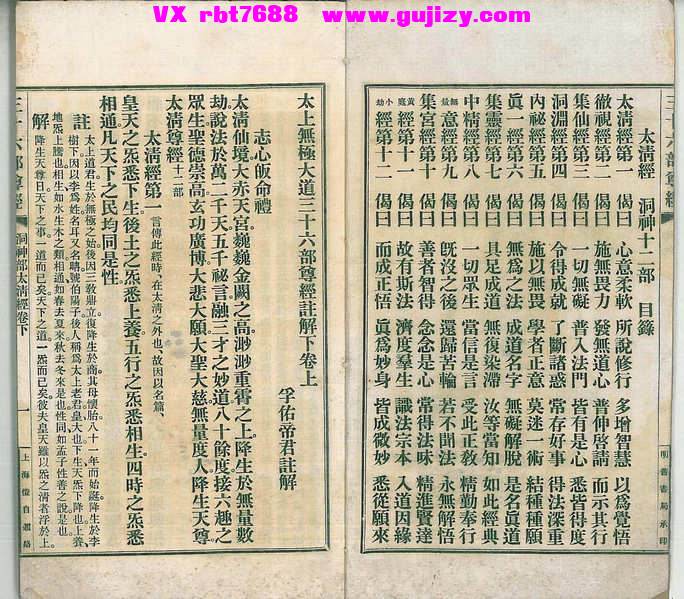 VX rbt7688 www.gujizy.com
太淸經 洞神十二部 目錄
太淸經第一 偈曰 心意柔軟 所說修行 多增智慧 以爲覺悟
徹視經第二 偈曰 施無畏力 發無道心 普仲啓請 而示其行
集仙經第三 偈曰 一切無礙 普入法門 皆有是心 悉皆得度
洞淵經第四 偈曰 令得成就 了斷諸惑 當存好事 得法深重
內祕經第五 偈曰 施以無畏 學者正意 莫迷一術 結種種願
眞一經第六 偈曰 無爲之法 成道名字 無礙解脫 是名眞道
集靈經第七 偈曰 具足成道 無復染滯 汝等當知 如此經典
中精經第八 偈曰 一切眾生 當信是言 受此正敎 精勤奉行
無量意經第九 偈曰 旣沒之後 還歸苦輪 若不聞法 永無解悟
集宮經第十 偈曰 善者智得 念念是心 常得法味 精進賢達
黃庭經第十一 偈曰 故有斯法 濟度羣生 識法宗本 入道因緣
小劫經第十二 偈曰 而成正悟 眞爲妙身 皆成微妙 悉從願來
三十六部尊經
明善書局承印
太上無極大道三十六部尊經註解下卷上
孚佑帝君註解
志心皈命禮
太淸仙境大赤天宮巍巍金闕之高渺渺重霄之上降生於無量數
劫說法於萬二千天五千祕言融三才之妙道八十餘度接六趣之
眾生聖德崇高玄功廣博大悲大願大聖大慈無量度人降生天尊
太淸尊經十二部
太淸經第一 言傳此經時、在太淸之外也、故因以名篇、
皇天之炁悉下生後土之炁悉上養五行之炁悉相生四時之炁悉
相通凡天下之民均同是性
註 太上道君生於無極之始後因三敎鼎立復降生於商其母懷胎八十一年而始誕降生於李
樹下因以李爲姓名耳又名聃號伯陽子後人稱爲太上老君皇大也下生天炁下降也上養
地炁上騰也相生如水生木之類相通如春去夏來秋去冬來是也性同如孟子性善之說是也
解 降生天尊曰天下之事一道而已矣天下之道一炁而已矣彼夫皇天雖以炁之淸者浮於上
三十六部尊經
洞神部太淸經卷下
一